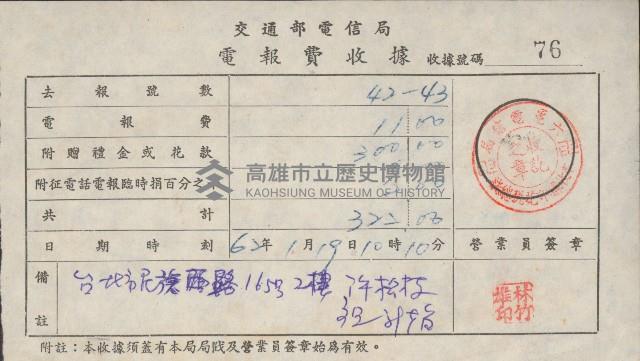 交通部電信局
電報費收據 收據號碼 76
去報號數 42-43
電報費 11 00
附贈禮金或花款 300 00
附征電話電報臨時捐百分之
共計 322 00
日期時刻 62年1月19日10時10分 營業員簽章
備註 台北市民族西路165號2樓 許松枝
林竹雄印
附註：本收據須蓋有本局局戳及營業員簽章始為有效。
高雄市立歷史博物館
KAOHSIUNG MUSEUM OF HISTORY